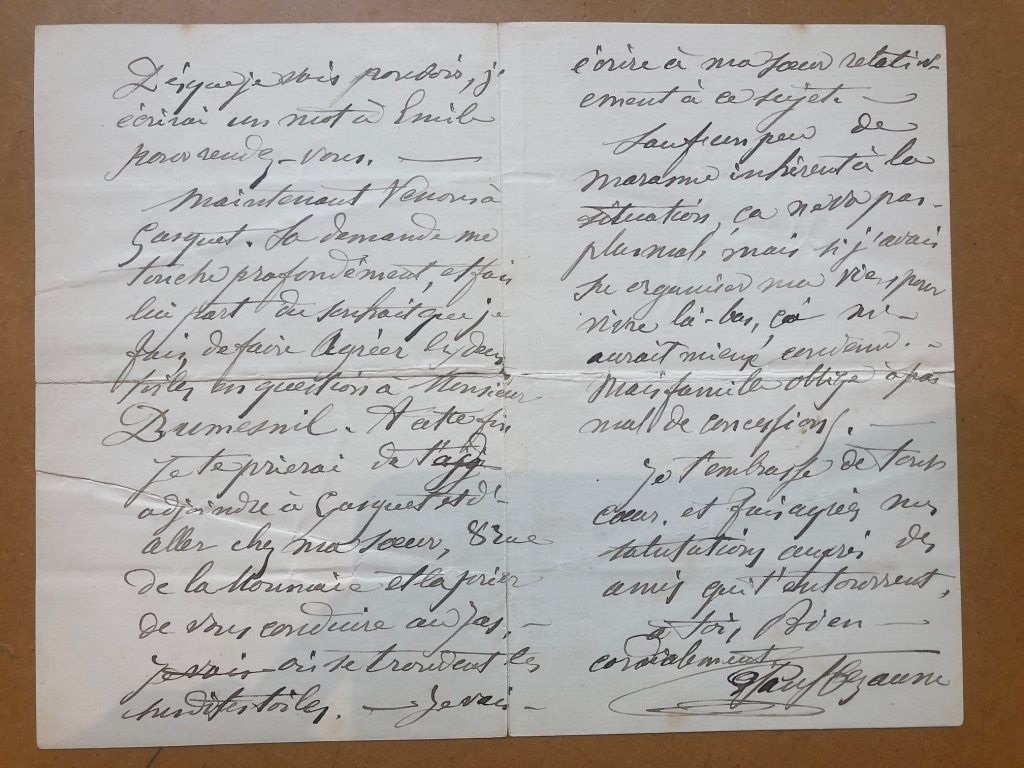 Dès que je vais pouvoir, j'
écrirai un mot à Emile
pour rendez-vous. —
Maintenant Venons à
Gasquet. Sa demande me
touche profondément, et fais
lui part du souhait que je
fais, de faire Agréer les deux
toiles en question à Monsieur
Dumesnil. A cette fin
je te prierai de
adjoindre à Gasquet et d'-
aller chez ma sœur, 8 rue
de la Monnaie et la prier
de vous conduire au Jas. —
je vais où se trouvent les
susdites toiles. — Je vais —
écrire à ma sœur relativ-
ement à ce sujet. —
Sauf un peu de
marasme inhérent à la
situation, ça ne va pas —
plus mal, mais si j'avais
su organiser ma vie pour
vivre là-bas, ça m'-
aurait mieux convenu. —
Mais famille oblige à pas
mal de concessions. —
Je t'embrasse de tout
cœur, et fais agréer mes
salutations auprès des
amis qui t'entourent,
à toi, Bien —
cordialement,
Paul Cezanne